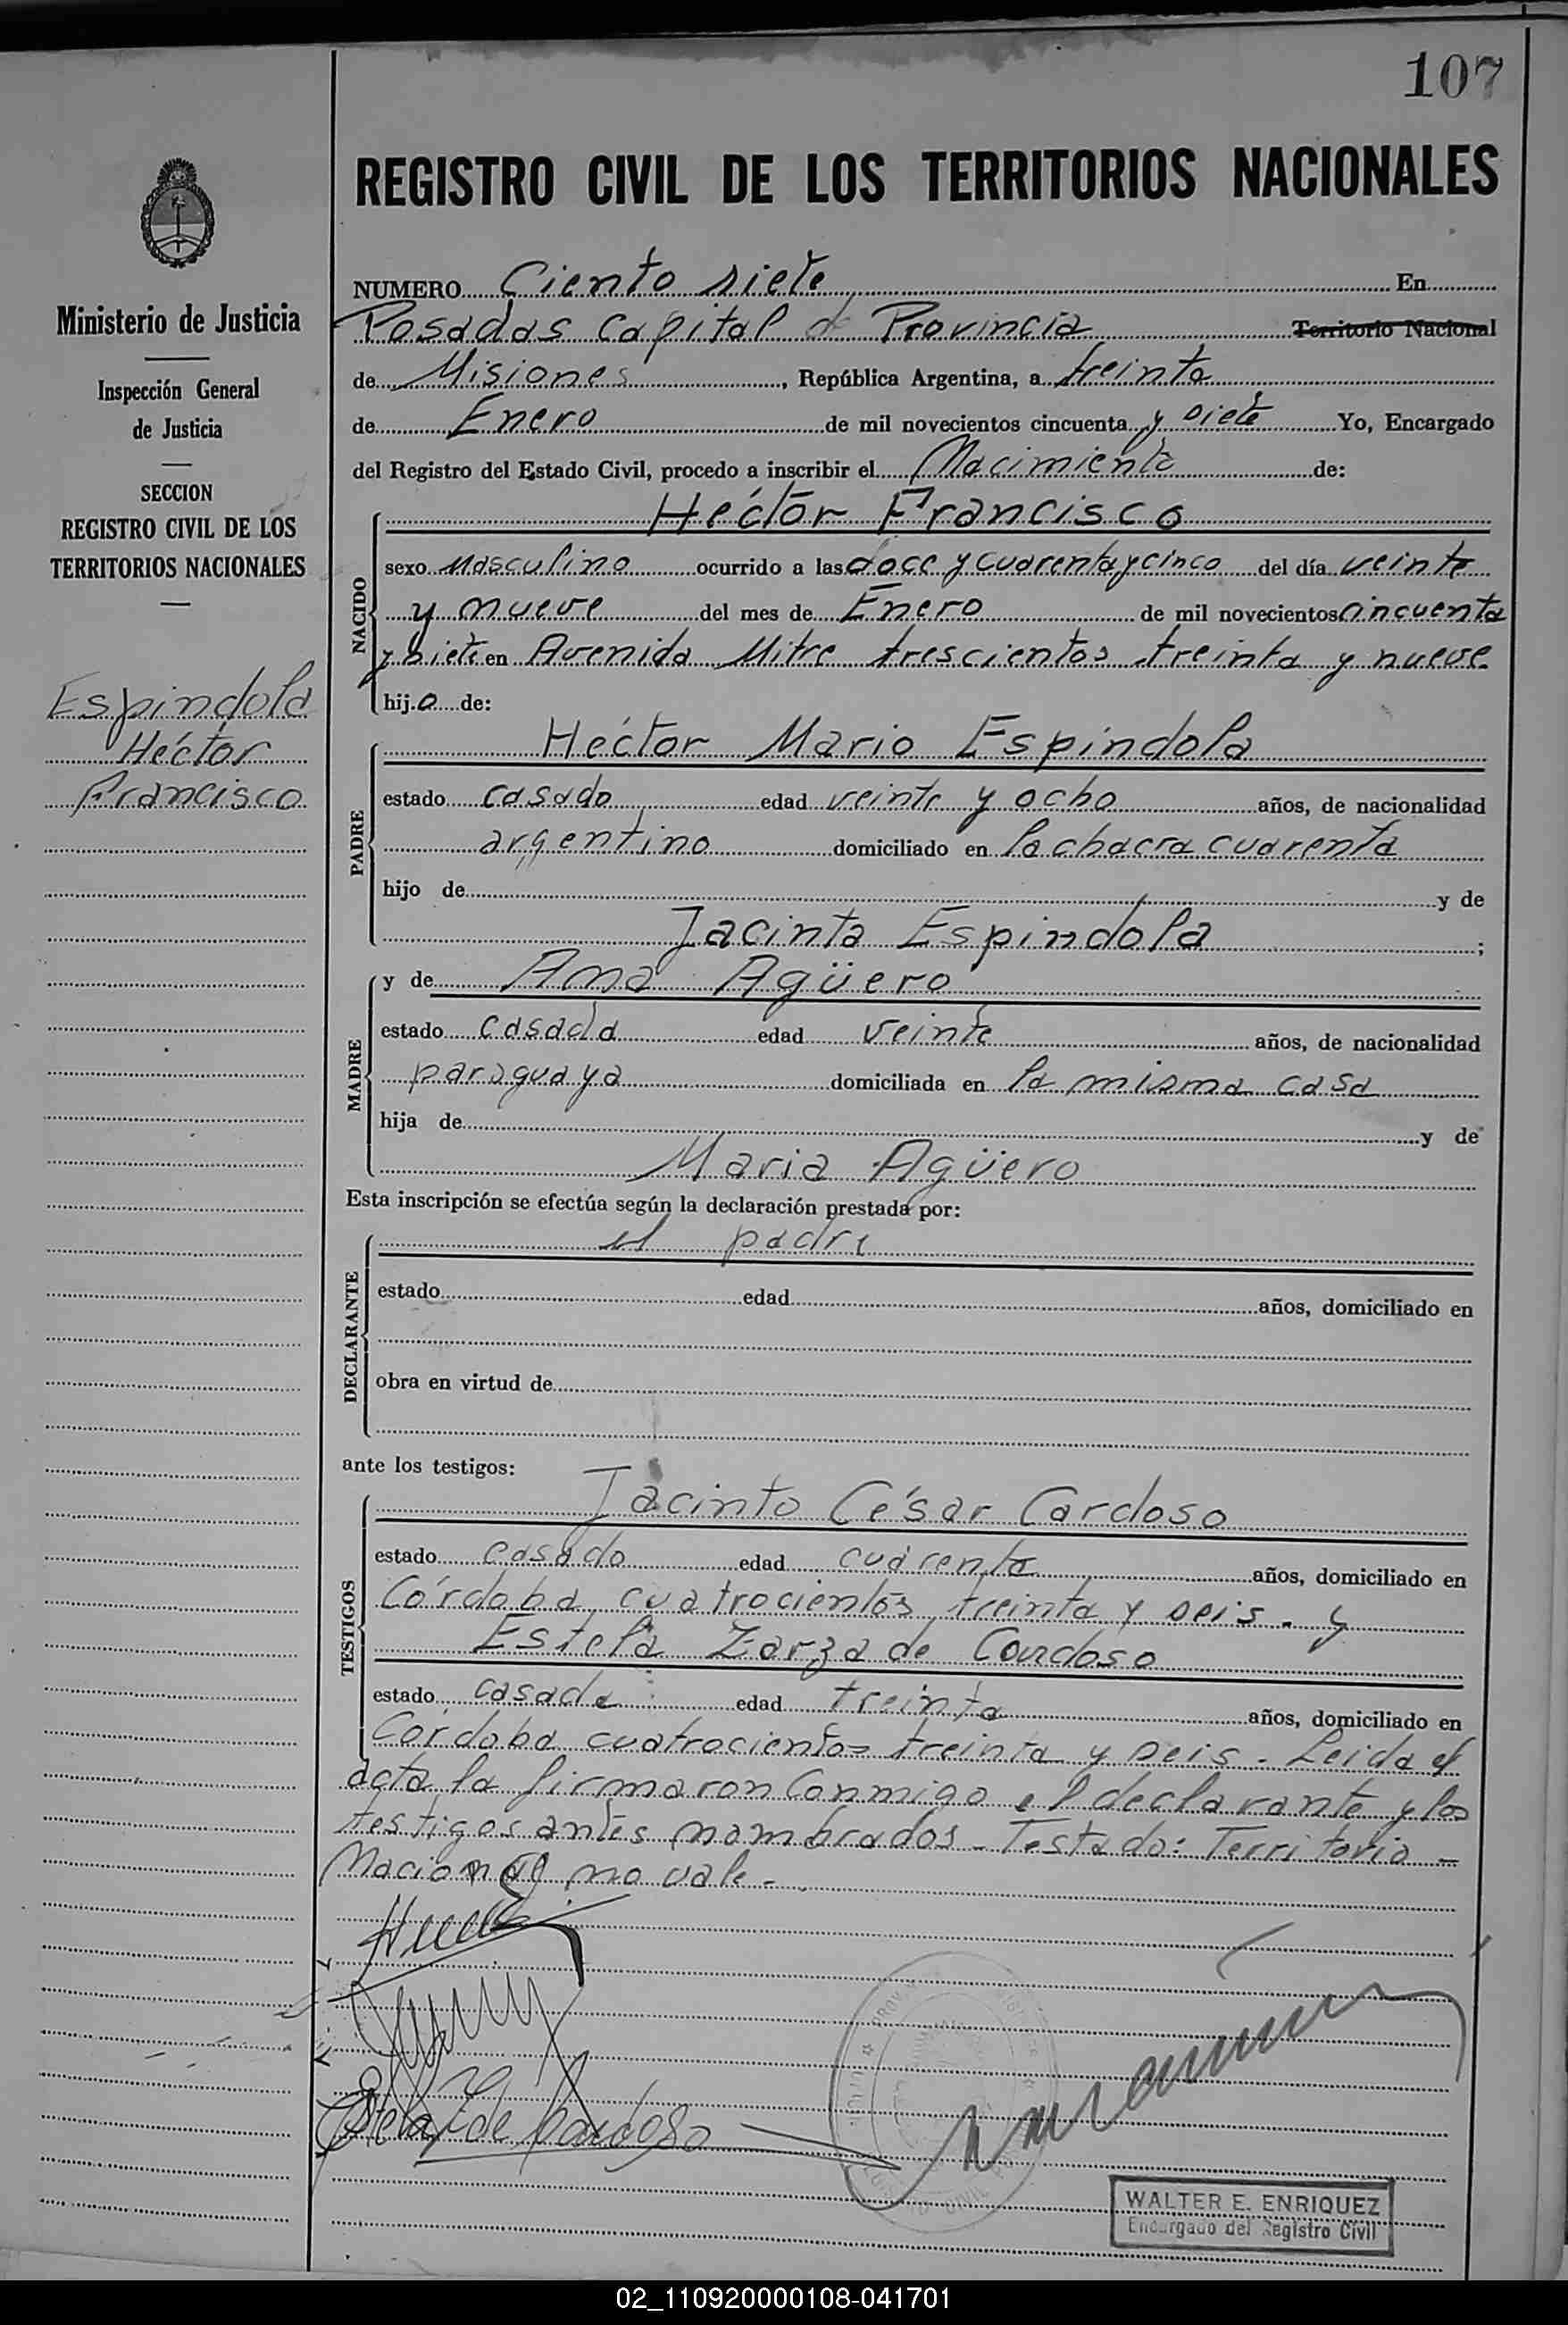 107
REGISTRO CIVIL DE LOS TERRITORIOS NACIONALES
Ministerio de Justicia
Inspección General
de Justicia
SECCION
REGISTRO CIVIL DE LOS
TERRITORIOS NACIONALES
Espíndola
Héctor
Francisco
NUMERO Ciento siete En
Posadas Capital de Provincia Territorio Nacional
de Misiones, República Argentina, a treinta
de Enero de mil novecientos cincuenta y siete Yo, Encargado
del Registro del Estado Civil, procedo a inscribir el Nacimiento de:
NACIDO
Héctor Francisco
sexo Masculino ocurrido a las doce y cuarenta y cinco del día veinte
y nueve del mes de Enero de mil novecientos cincuenta
y siete en Avenida Mitre trescientos treinta y nueve
hijo de:
PADRE
Héctor Mario Espíndola
estado casado edad veinte y ocho años, de nacionalidad
argentino domiciliado en la chacra cuarenta
hijo de y de
Jacinta Espíndola;
MADRE
y de Ana Agüero
estado casada edad veinte años, de nacionalidad
paraguaya domiciliada en la misma casa
hija de y de
Maria Agüero
Esta inscripción se efectúa según la declaración prestada por:
DECLARANTE
el padre
estado edad años, domiciliado en
obra en virtud de
ante los testigos:
TESTIGOS
Jacinto César Cardoso
estado casado edad cuarenta años, domiciliado en
Córdoba cuatrocientos treinta y seis. y
Estela Zarza de Cardoso
estado casada edad treinta años, domiciliado en
Córdoba cuatrocientos treinta y seis. Leida el
acta la firmaron conmigo el declarante y los
testigos antes nombrados - Testado: Territorio -
Nacional no vale -
Estela Z de Cardoso
WALTER E. ENRIQUEZ
Encargado del Registro Civil
02_110920000108-041701